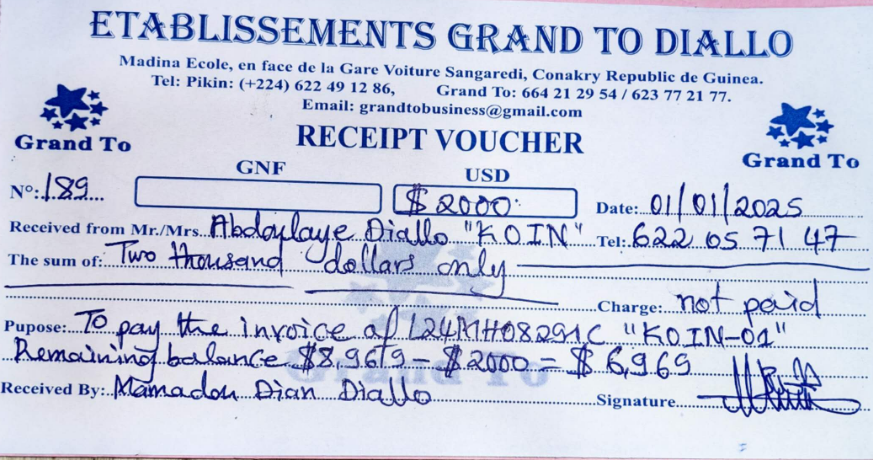 ETABLISSEMENTS GRAND TO DIALLO
Madina Ecole, en face de la Gare Voiture Sangaredi, Conakry Republic de Guinea.
Tel: Pikin: (+224) 622 49 12 86, Grand To: 664 21 29 54 / 623 77 21 77.
Email: grandtobusiness@gmail.com
Grand To
RECEIPT VOUCHER
Grand To
GNF USD
N°: 189 $ 2000 Date: 01/01/2025
Received from Mr./Mrs. Abdoulaye Diallo "KOIN" Tel: 622 05 71 47
The sum of: Two thousand dollars only
Charge: not paid
Pupose: To pay the invoice of L24MH0829IC "KOIN-01"
Remaining balance $8,969 - $2000 = $6,969
Grand To
Received By: Mamadou Dian Diallo Signature